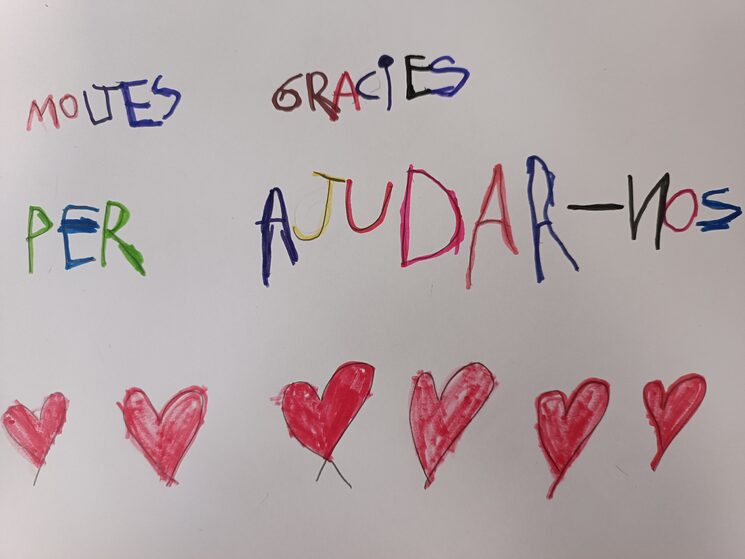 MOLTES GRACIES
PER AJUDAR-NOS